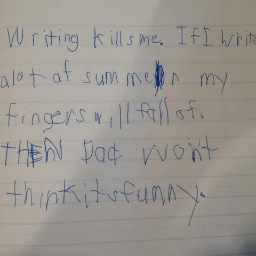 Writing kills me. If I write
alot at summer in my
fingers will fall of.
THEN Dad wont
think its funny.